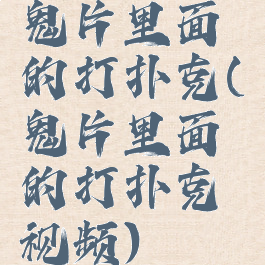 鬼片里面
的打扑克(
鬼片里面
的打扑克
视频)